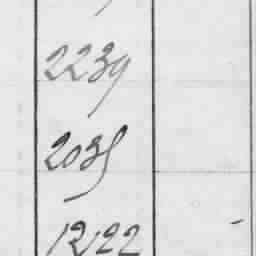 2239
2035
12122